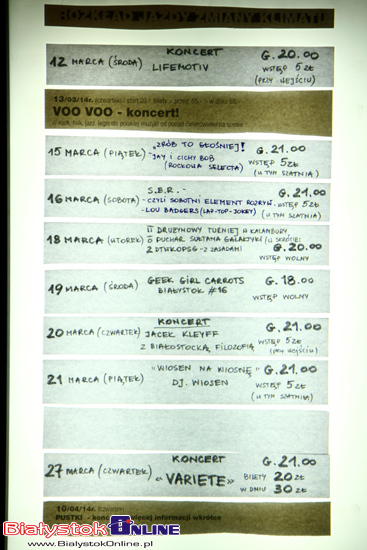 ROZKŁAD JAZDY ZMIANY KLIMATU
12 MARCA (ŚRODA) KONCERT LIFEMOTIV G. 20.00
WSTĘP 5 ZŁ
(PRZY WEJŚCIU)
13/03/14r. (czwartek) / start 20 / bilety - przed 55,- / w dniu 65,-
VOO VOO - koncert!
15 MARCA (PIĄTEK) „ZRÓB TO GŁOŚNIEJ!
- JAY I CICHY BOB
(ROCKOWA SELECTA)
G. 21.00
WSTĘP 5 ZŁ
(W TYM SZATNIA)
16 MARCA (SOBOTA) S.E.R. -
- CZYLI SOBOTNI ELEMENT ROZRYW.
- LOU BADGERS (LAP-TOP-JOKEY)
G. 21.00
WSTĘP 5 ZŁ
(W TYM SZATNIA)
18 MARCA (WTOREK) II DRUŻYNOWY TURNIEJ W KALAMBURY
O PUCHAR SUŁTANA GALAKTYKI
Z DTWKOPSG - Z ZASADAMI
G. 20.00
WSTĘP WOLNY
19 MARCA (ŚRODA) GEEK GIRL CARROTS
BIAŁYSTOK #16
G. 18.00
WSTĘP WOLNY
20 MARCA (CZWARTEK) KONCERT
JACEK KLEYFF
Z BIAŁOSTOCKĄ FILOZOFIĄ
G. 21.00
WSTĘP 5 ZŁ
(PRZY WEJŚCIU)
21 MARCA (PIĄTEK) "WIOSEN NA WIOSNĘ"
DJ. WIOSEN
G. 21.00
WSTĘP 5 ZŁ
(W TYM SZATNIA)
27 MARCA (CZWARTEK) KONCERT
« VARIETE »
G. 21.00
BILETY 20 ZŁ
W DNIU 30 ZŁ
10/04/14r. (czwartek)
PUSTKI - koncert - więcej informacji wkrótce
Białystok ONLINE
www.BialystokOnline.pl